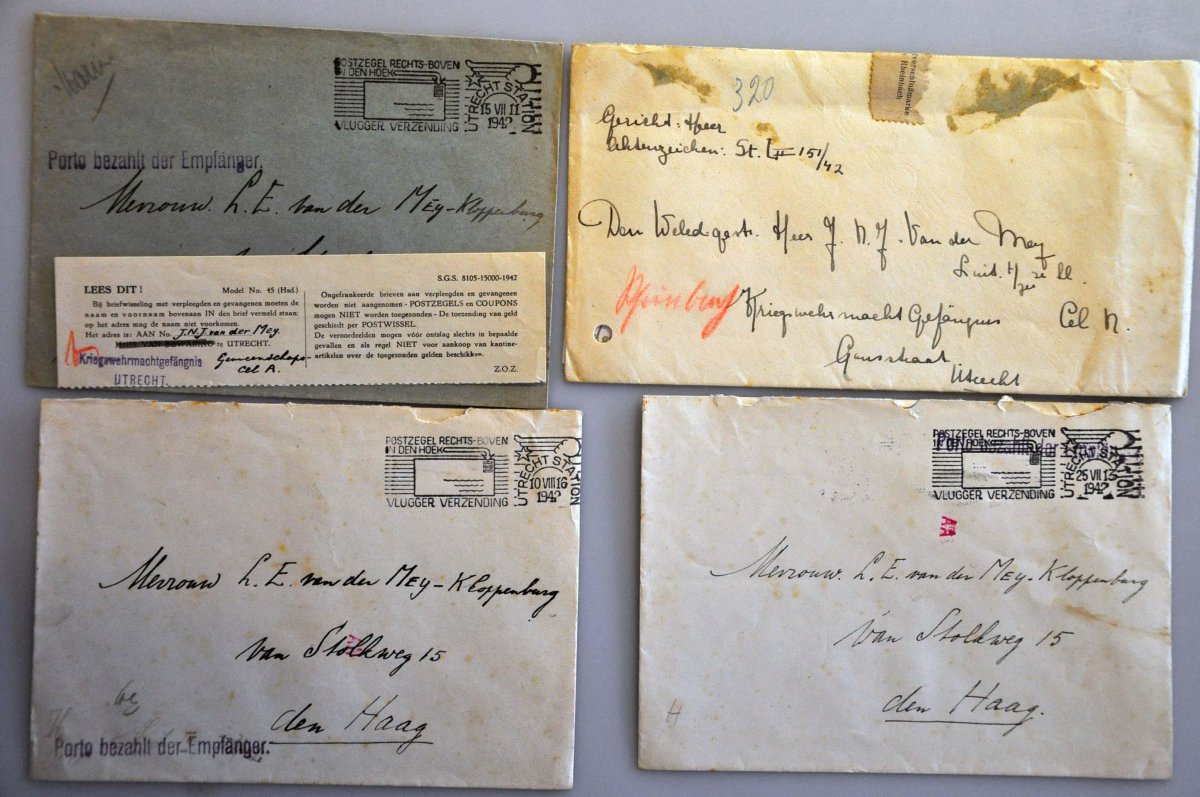 POSTZEGEL RECHTS-BOVEN
IN DEN HOEK
VLUGGER VERZENDING
UTRECHT STATION
15 VII 11
1942
Porto bezahlt der Empfänger.
Mevrouw. L. E. van der Mey-Kloppenburg
S.G.S. 8105-15000-1942
LEES DIT!
Model No. 45 (Hsd.)
Bij briefwisseling met verpleegden en gevangenen moeten de
naam en voornaam bovenaan IN den brief vermeld staan:
op het adres mag de naam niet voorkomen.
Het adres is: AAN No. J.N.J. van der Mey.
HUIS VAN BEWARING te UTRECHT.
Kriegswehrmachtgefängnis
UTRECHT.
Gemeenschaps-
cel A.
Ongefrankeerde brieven aan verpleegden en gevangenen
worden niet aangenomen - POSTZEGELS en COUPONS
mogen NIET worden toegezonden - De toezending van geld
geschiedt per POSTWISSEL.
De veroordeelden mogen vóór ontslag slechts in bepaalde
gevallen en als regel NIET voor aankoop van kantine-
artikelen over de toegezonden gelden beschikken.
Z.O.Z.
320
verschlußmarke
Rheinbach
Gericht: Heer
Aktenzeichen: St. L II 151/42
Den Weledigestr. Heer J. N. J. Van der Mey
Rheinbach
Kriegswehrmacht Gefängnis Cel N.
Gansstraat
Utrecht
POSTZEGEL RECHTS-BOVEN
IN DEN HOEK
VLUGGER VERZENDING
UTRECHT STATION
10 VIII 16
1942
Mevrouw L. E. van der Mey-Kloppenburg
van Stolkweg 15
den Haag
Porto bezahlt der Empfänger.
POSTZEGEL RECHTS-BOVEN
IN DEN HOEK
VLUGGER VERZENDING
UTRECHT STATION
25 VII 13
1942
Mevrouw. L. E. van der Mey-Kloppenburg
van Stolkweg 15
den Haag.
H